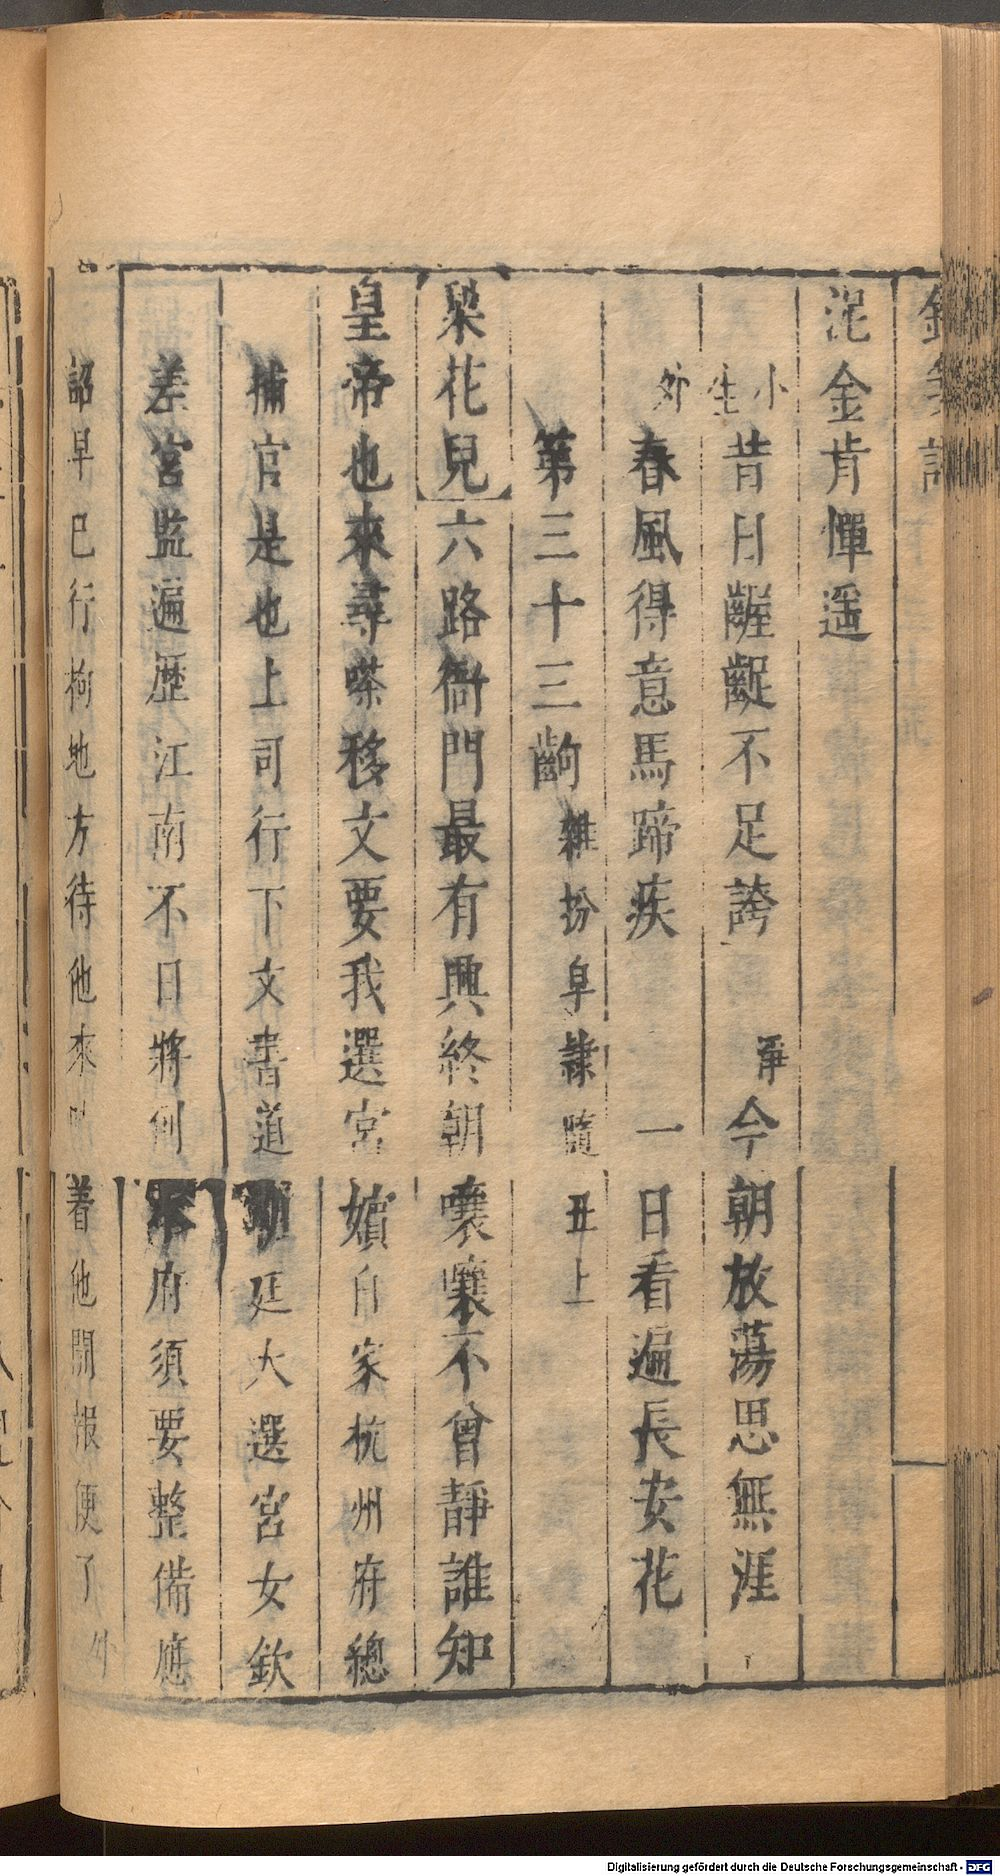 泥金肯憚遥
小生昔日齷齪不足誇 淨今朝放蕩思無涯
外春風得意馬蹄疾 一日看遍長安花
第三十三齣 雜扮皁隸隨丑上
梨花兒六路衙門最有興終朝嚷嚷不曾靜誰知
皇帝也來尋嗏移文要我選宮嬪自家杭州府總
捕官是也上司行下文書道朝廷大選宮女欽
差宮監遍歷江南不日將到本府須要整備應
詔早已行拘地方待他來時着他開報便了外
Digitalisierung gefördert durch die Deutsche Forschungsgemeinschaft - DFG